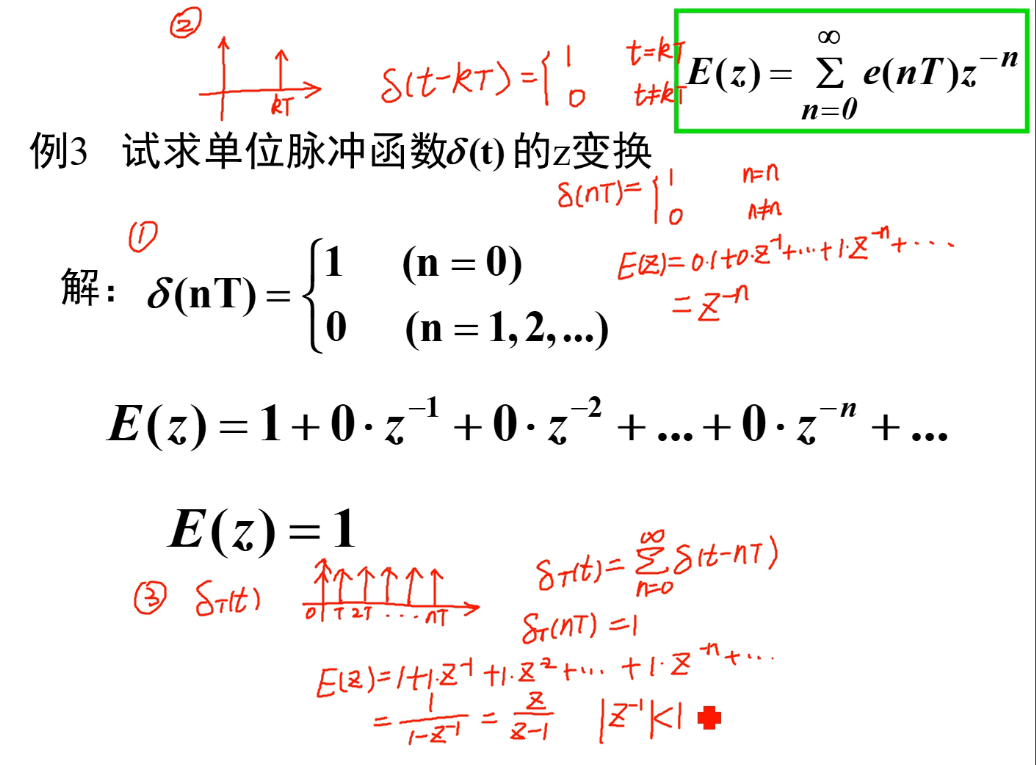 ②
kT
δ(t-kT) = { 1 t=kT
0 t≠kT
E(z) = ∑ e(nT)z⁻ⁿ
∞
n=0
例3 试求单位脉冲函数δ(t)的z变换
δ(nT)= { 1 n=n
0 n≠n
①
解：δ(nT) = { 1 (n = 0)
0 (n = 1, 2, ...)
E(z)= 0·1+0·z⁻¹+···+1·z⁻ⁿ+···
= z⁻ⁿ
E(z) = 1 + 0·z⁻¹ + 0·z⁻² + ... + 0·z⁻ⁿ + ...
E(z) = 1
③ δT(t)
0 T 2T ··· nT
δT(t)= ∑ δ(t-nT)
∞
n=0
δT(nT) =1
E(z)=1+1·z⁻¹+1·z²+··· +1·z⁻ⁿ+···
= 1/(1-z⁻¹) = z/(z-1) |z⁻¹|<1